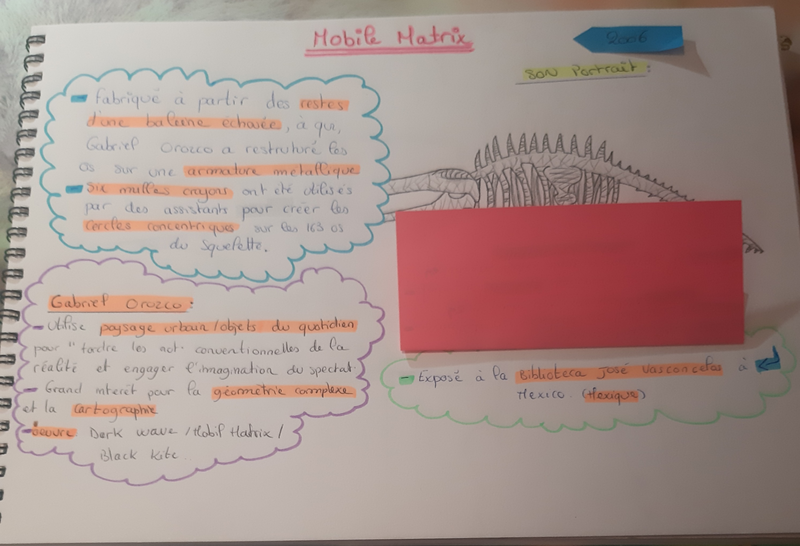 Mobile Matrix
2006
SON Portrait :
- Fabriqué à partir des restes
d'une baleine échouée, à qui,
Gabriel Orozco a restruturé les
os sur une armature metallique
- Six milles crayons ont été utilisés
par des assistants pour créer les
cercles concentriques sur les 163 os
du squelette.
Gabriel Orozco :
- Utilise paysage urbain/objets du quotidien
pour "tordre les not. conventionnelles de la
réalité et engager l'imagination du spectat.
- Grand interêt pour la géométrie complexe
et la cartographie
- oeuvre Dark wave / Mobil Matrix /
Black Kite.
- Exposé à la Biblioteca José Vasconcelos à
Mexico. (Mexique)